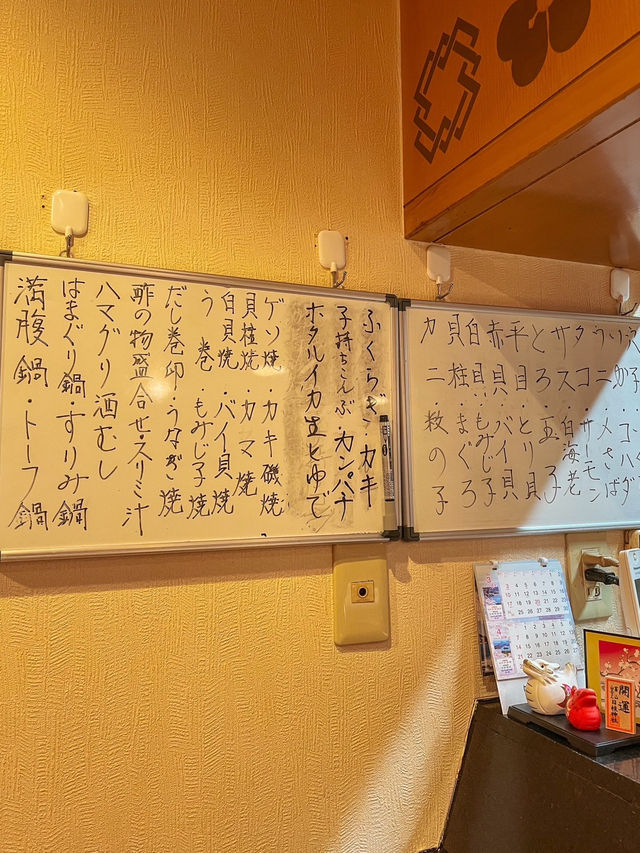 いか・コハダ
うに・〆さば
タコ・サーモン
サス・白海老
とろ・玉子
平目・とり貝
赤貝・バイ貝
白貝・もみじ子
貝柱・まぐろ
カニ・数の子
ふくらぎ・カキ
子持ちこんぶ・カンパチ
ホタルイカ生とゆで
ゲソ焼・カキ磯焼
貝柱焼・カマ焼
白貝焼・バイ貝焼
う巻 もみじ子焼
だし巻卵・うなぎ焼
酢の物盛合せ・スリミ汁
ハマグリ酒むし
はまぐり鍋 すりみ鍋
満腹鍋・トーフ鍋
3
4
開運
日枝神社